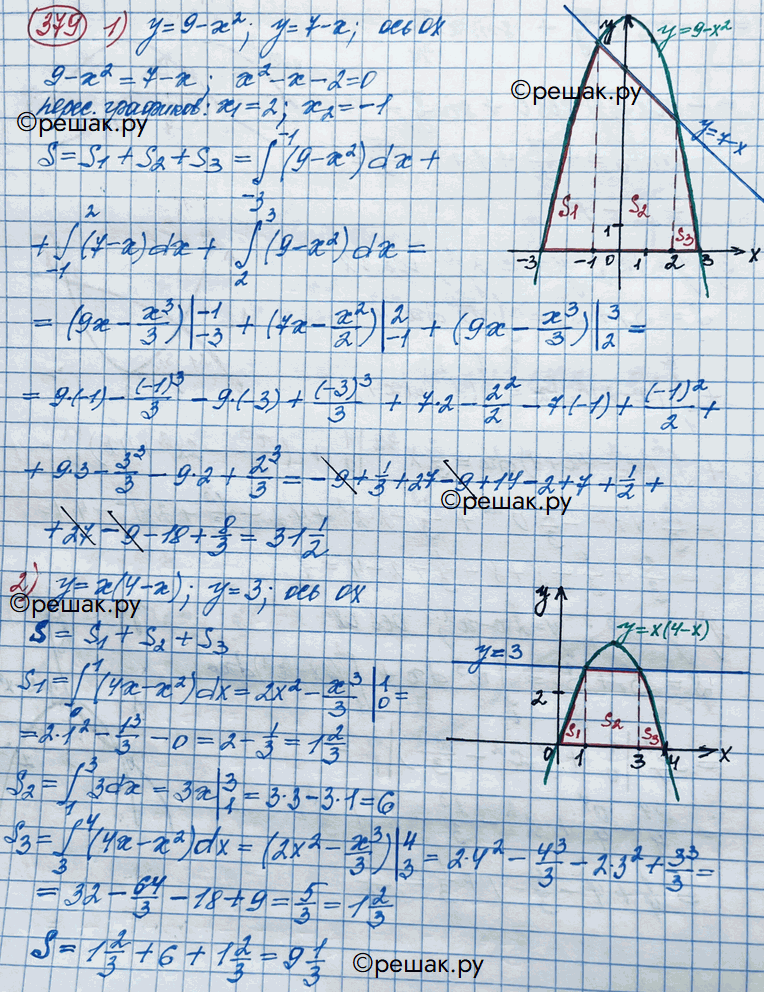 379 1) y=9-x²; y=7-x; ось ох
9-x²=7-x; x²-x-2=0
перес. графиков: x₁=2; x₂=-1
©решак.ру
S=S₁+S₂+S₃=∫₋₃⁻¹(9-x²)dx+
+∫₋₁²(7-x)dx+∫₂³(9-x²)dx=
=(9x-x³/3)|₋₃⁻¹+(7x-x²/2)|₋₁²+(9x-x³/3)|₂³=
=9·(-1)-(-1)³/3-9·(-3)+(-3)³/3+7·2-2²/2-7·(-1)+(-1)²/2+
+9·3-3³/3-9·2+2³/3=-9+1/3+27-9+14-2+7+1/2+
©решак.ру
+27-9-18+8/3=31 1/2
y
y=9-x²
©решак.ру
y=7-x
S₁ S₂ S₃
1
-3 -1 0 1 2 3 x
2) y=x(4-x); y=3; ось ох
©решак.ру
S=S₁+S₂+S₃
S₁=∫₀¹(4x-x²)dx=2x²-x³/3|₀¹=
=2·1²-1³/3-0=2-1/3=1 2/3
S₂=∫₁³3dx=3x|₁³=3·3-3·1=6
S₃=∫₃⁴(4x-x²)dx=(2x²-x³/3)|₃⁴=2·4²-4³/3-2·3²+3³/3=
=32-64/3-18+9=5/3=1 2/3
S=1 2/3+6+1 2/3=9 1/3
©решак.ру
y
y=x(4-x)
y=3
2
S₁ S₂ S₃
0 1 3 4 x